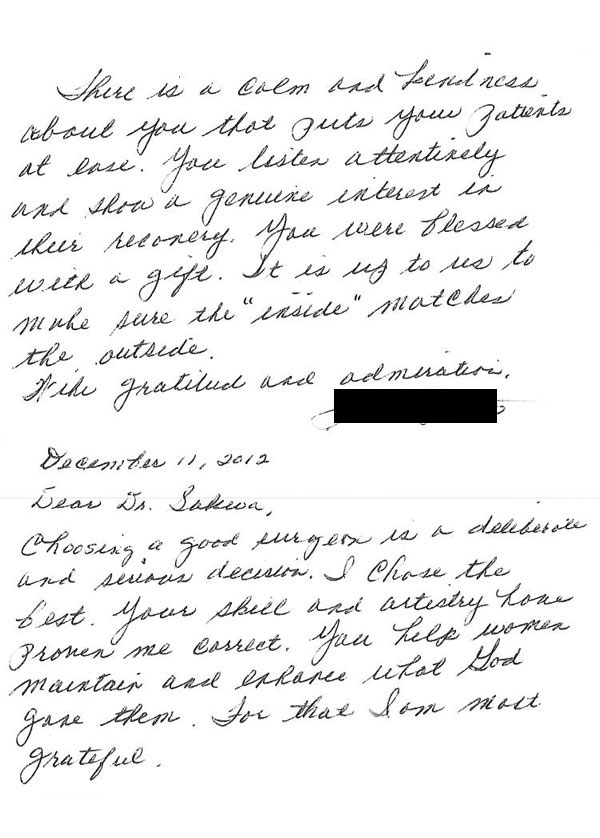 There is a calm and kindness
about you that puts your patients
at ease. You listen attentively
and show a genuine interest in
their recovery. You were blessed
with a gift. It is up to us to
make sure the "inside" matches
the outside.
With gratitud and admiration.
December 11, 2012
Dear Dr. Sakwa,
Choosing a good surgeon is a deliberate
and serious decision. I chose the
best. Your skill and artistry have
proven me correct. You help women
maintain and enhance what God
gave them. For that I am most
grateful.